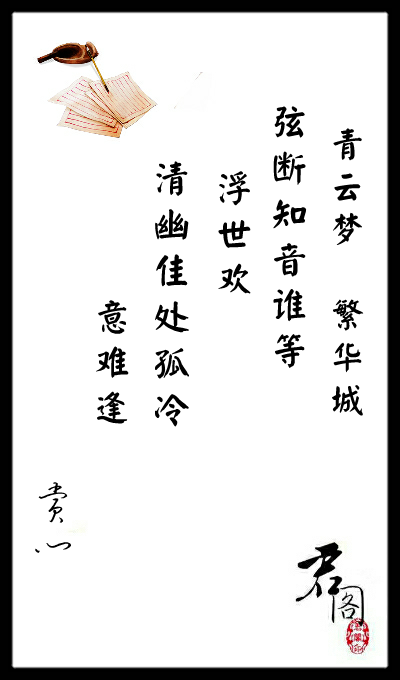 青云梦 繁华城
弦断知音谁等
浮世欢
清幽佳处孤冷
意难逢
赏心
君阁